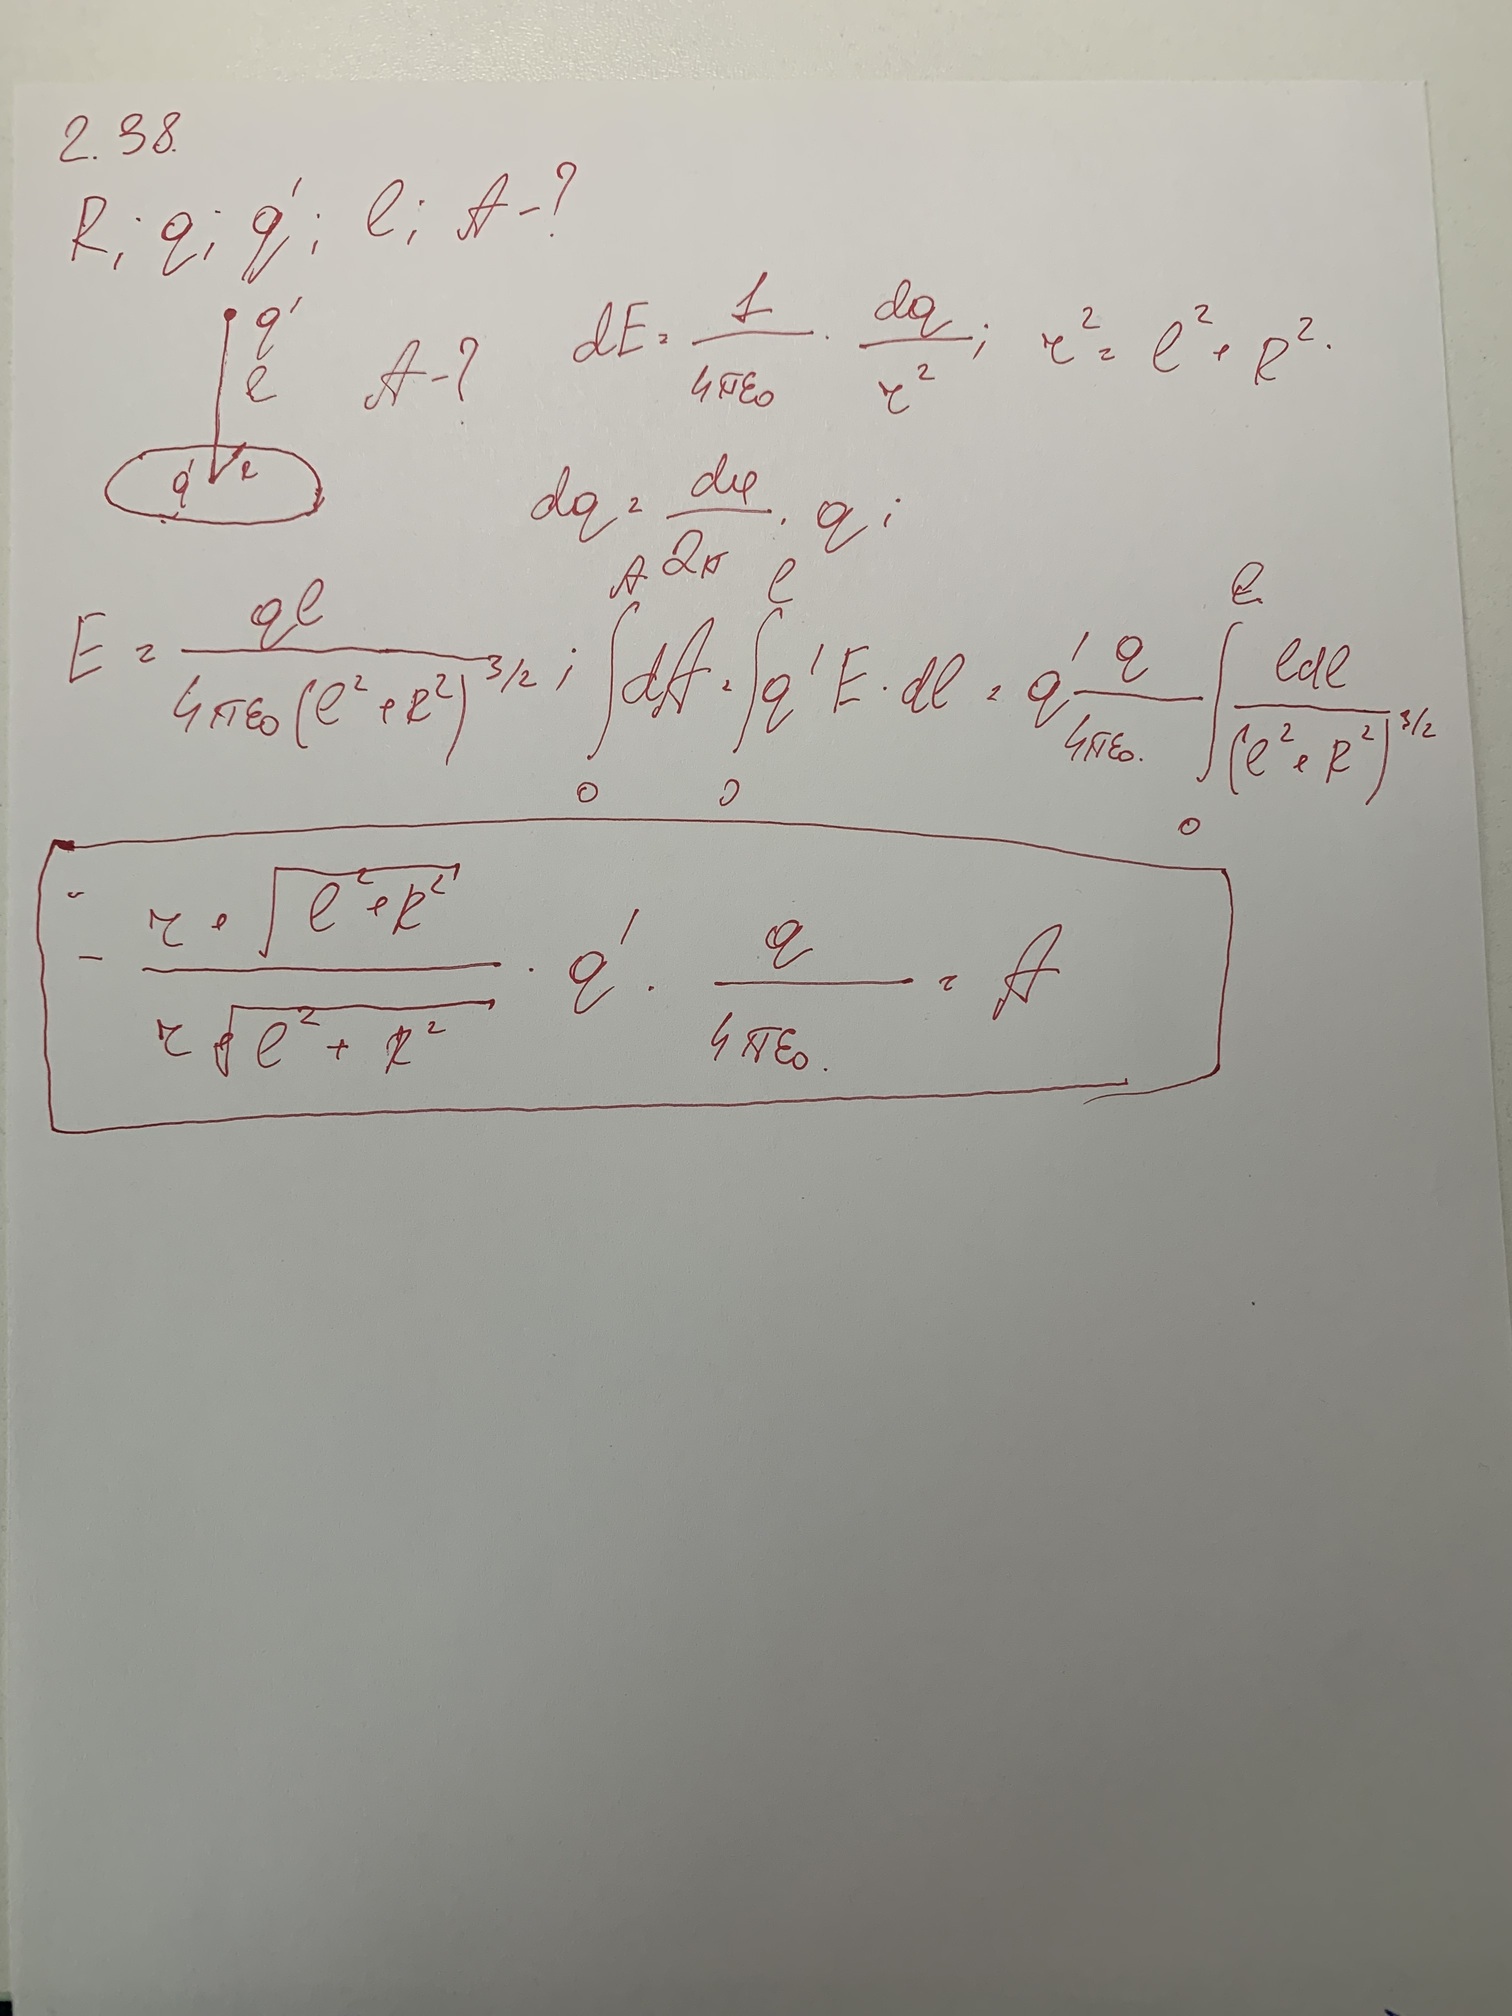 2.38.
R; q; q'; l; A-?
q'
l
q' R
A-?
dE = 1/4πε₀ · dq/r²; r² = l² + R².
dq = dφ/2π · q;
E = ql/4πε₀(l² + R²)^3/2; ∫₀ᴬ dA = ∫₀ˡ q'E·dl = q' q/4πε₀. ∫₀ˡ ldl/(l² + R²)^3/2
= - r + √(l² + R²)/r√(l² + R²) · q' · q/4πε₀. = A